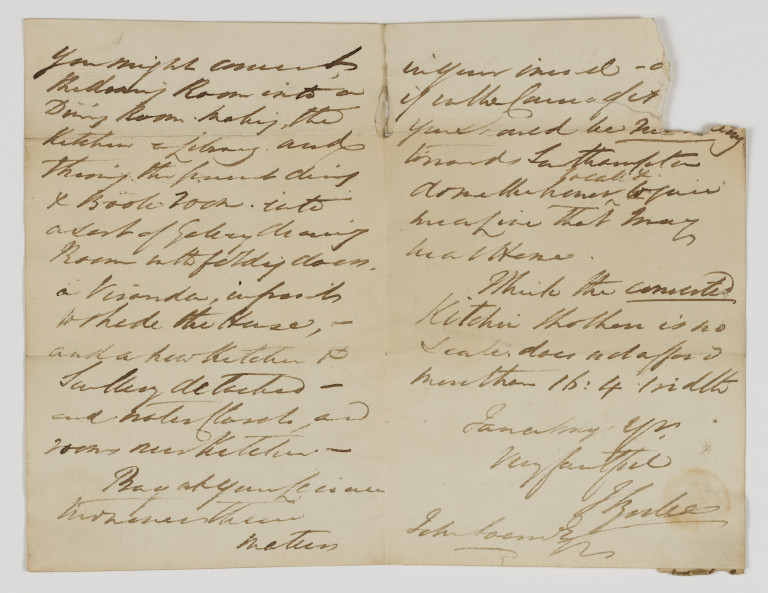 You might convert
the dining Room into a
Dining Room making the
Kitchen a library and
throw the present dining
& Book room into
a sort of Gallery drawing
Room with folding doors.
a Viranda, in front
to shade the House, –
and a new Kitchen &
Scullery detached –
and water Closets, and
rooms over Kitchen –
Pray at your leisure
turn over these
matters
in your mind –
if in the Course of it
you should be
towards Southampton
do me the honor to give
me a line that I may
be at Home.
While the converted
Kitchen is no
scale does not afford
more than 16:4 width
I am always yr
Very faithful
John Esqr